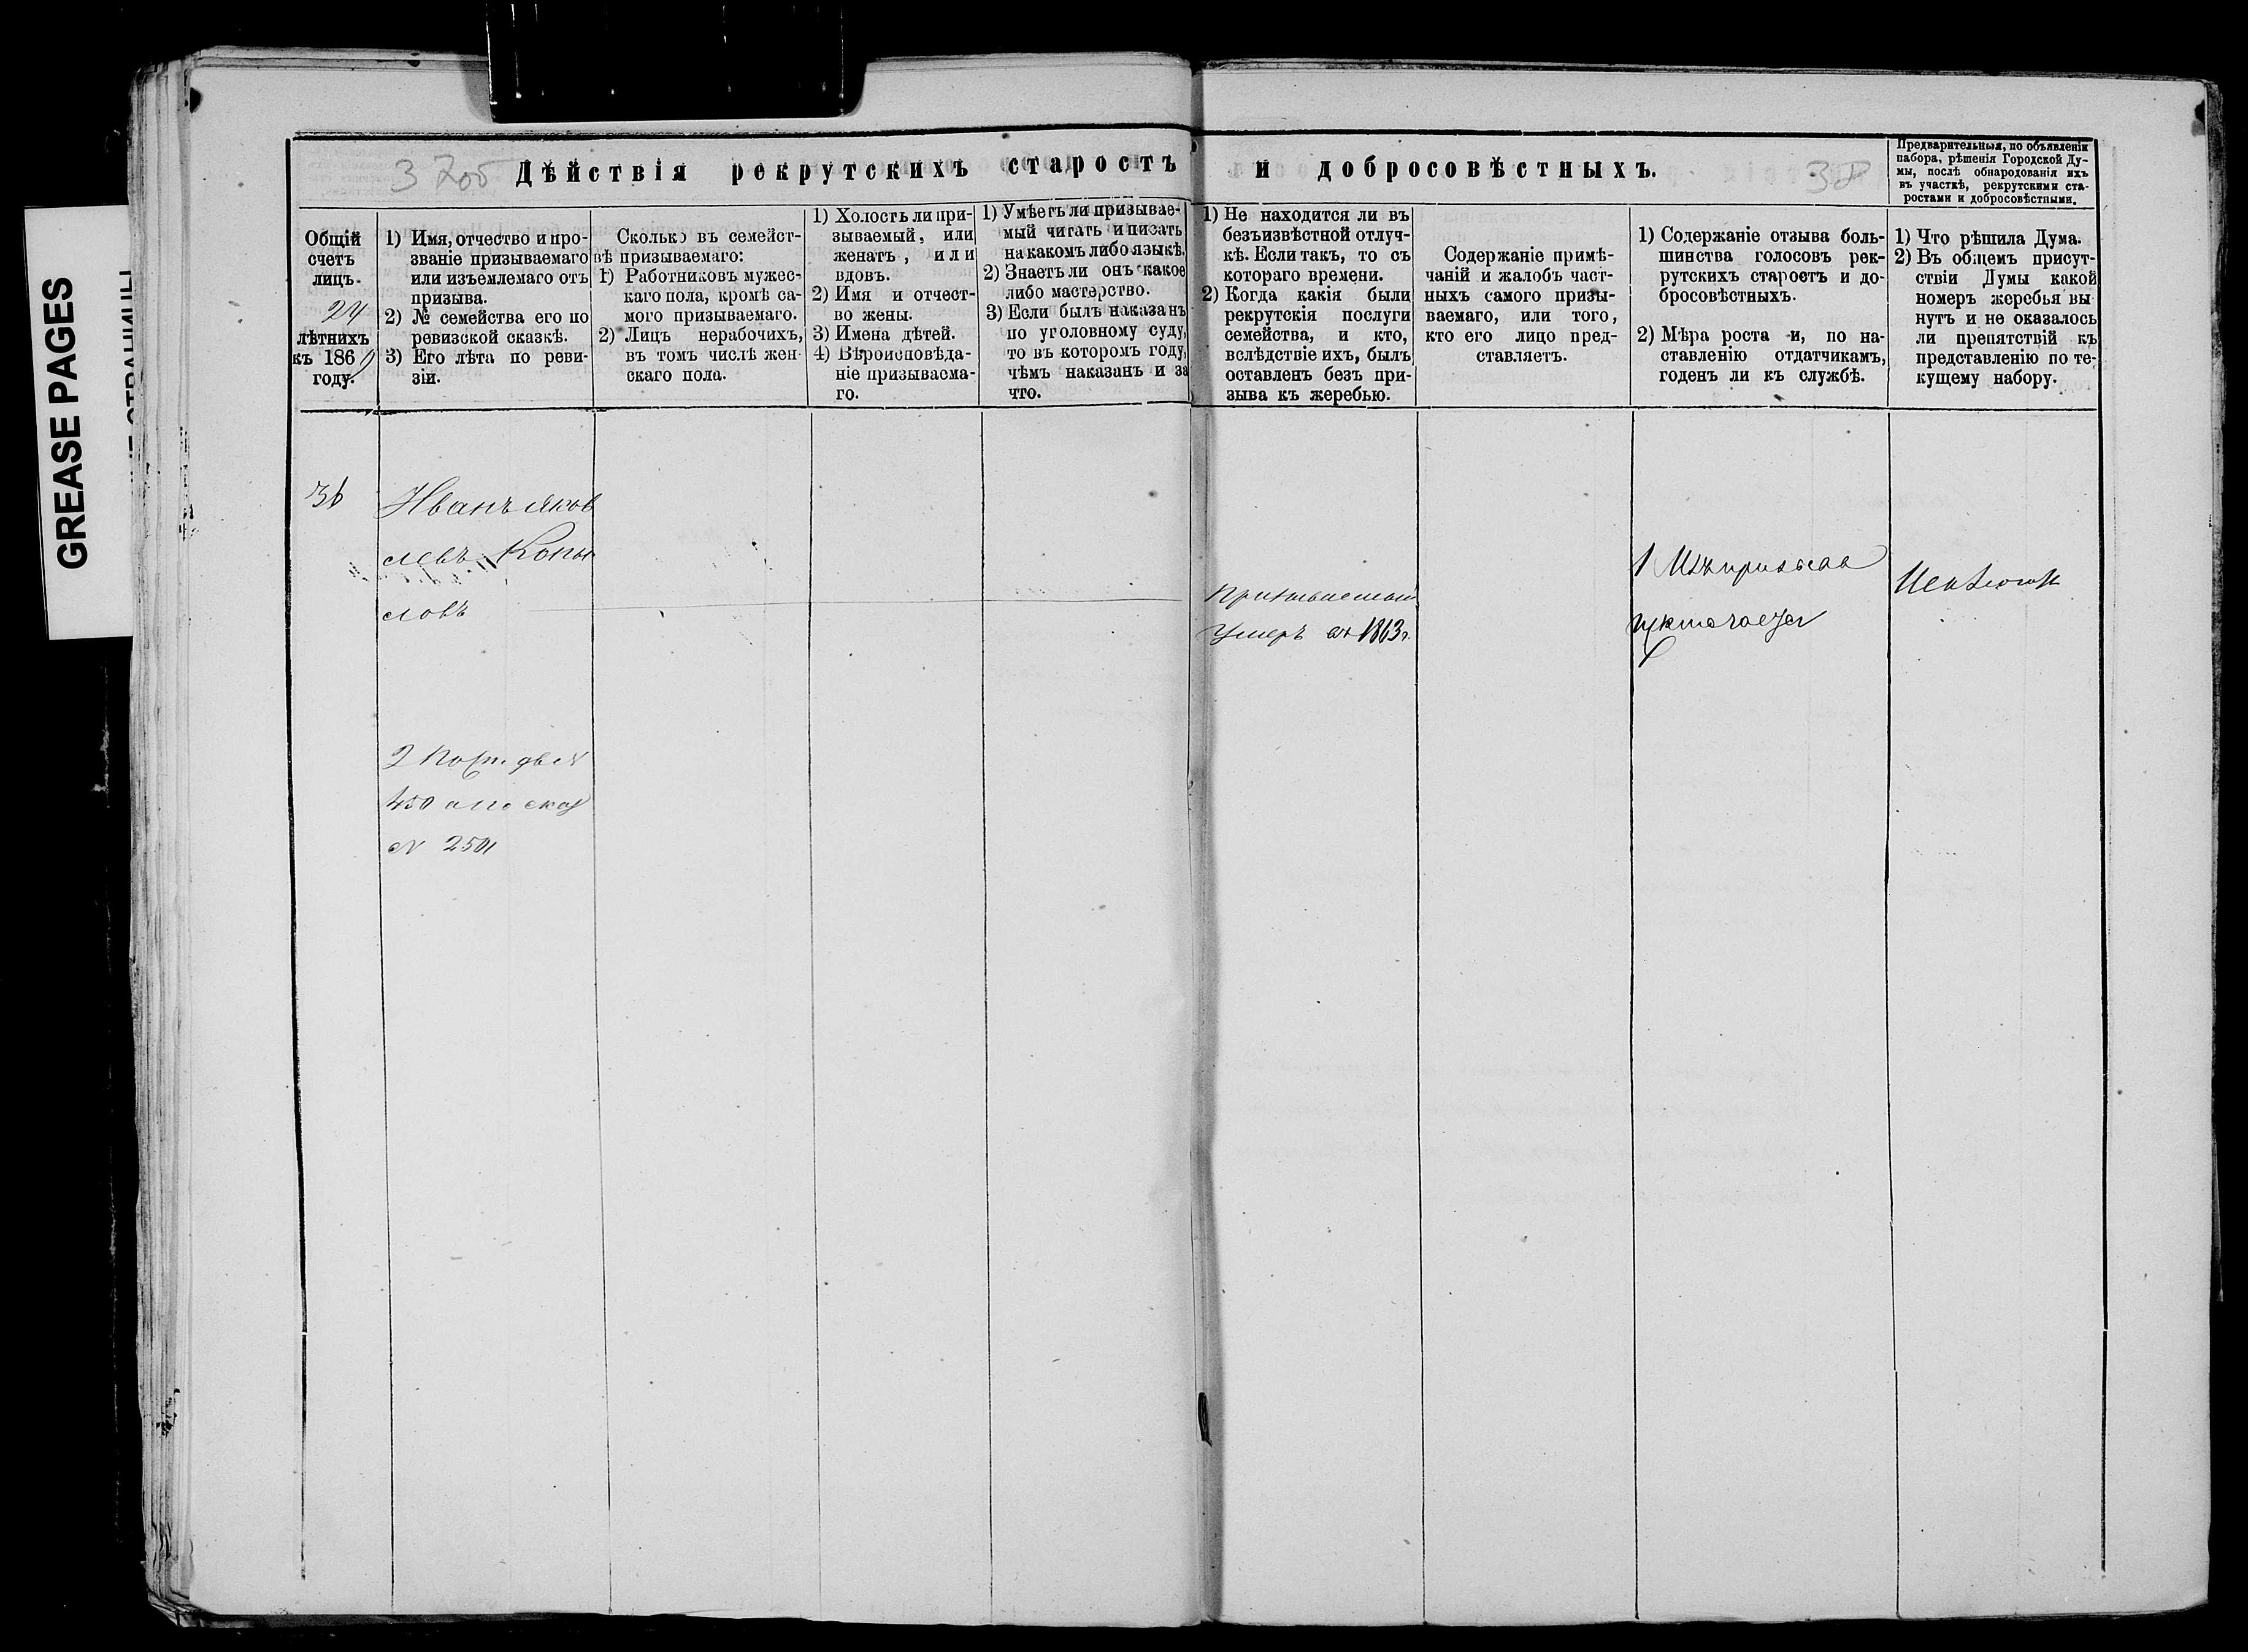 GREASE PAGES
37об
Дѣйствія рекрутскихъ старостъ
и добросовѣстныхъ.
38
Предварительныя, по объявленіи
набора, рѣшенія Городской Ду-
мы, послѣ обнародованія ихъ
въ участкѣ, рекрутскими ста-
ростами и добросовѣстными.
Общій
счетъ
лицъ.
24
лѣтнихъ
къ 1869
году.
1) Имя, отчество и про-
званіе призываемаго
или изъемлемаго отъ
призыва.
2) № семейства его по
ревизской сказкѣ.
3) Его лѣта по реви-
зіи.
Сколько въ семейст-
вѣ призываемаго:
1) Работниковъ мужес-
каго пола, кромѣ са-
мого призываемаго.
2) Лицъ нерабочихъ,
въ томъ числѣ жен-
скаго пола.
1) Холостъ ли при-
зываемый, или
женатъ, или
вдовъ.
2) Имя и отчест-
во жены.
3) Имена дѣтей.
4) Вѣроисповѣда-
ніе призываема-
го.
1) Умѣетъ ли призывае-
мый читать и писать
на какомъ либо языкѣ.
2) Знаетъ ли онъ какое
либо мастерство.
3) Если былъ наказанъ
по уголовному суду,
то въ которомъ году,
чѣмъ наказанъ и за
что.
1) Не находится ли въ
безъизвѣстной отлуч-
кѣ. Если такъ, то съ
котораго времени.
2) Когда какія были
рекрутскія послуги
семейства, и кто,
вслѣдствіе ихъ, былъ
оставленъ безъ при-
зыва къ жеребью.
Содержаніе примѣ-
чаній и жалобъ част-
ныхъ самого призы-
ваемаго, или того,
кто его лицо пред-
ставляетъ.
1) Содержаніе отзыва боль-
шинства голосовъ рек-
рутскихъ старостъ и до-
бросовѣстныхъ.
2) Мѣра роста и, по на-
ставленію отдатчикамъ,
годенъ ли къ службѣ.
1) Что рѣшила Дума.
2) Въ общемъ присут-
ствіи Думы какой
номеръ жеребья вы-
нутъ и не оказалось
ли препятствій къ
представленію по те-
кущему набору.
36
Иванъ Яков
левъ Копы
ловъ
2 По
450 а по сказ
№ 2501
Призываемый
умеръ въ 1863 г.
1 Изъ призыва
исключается